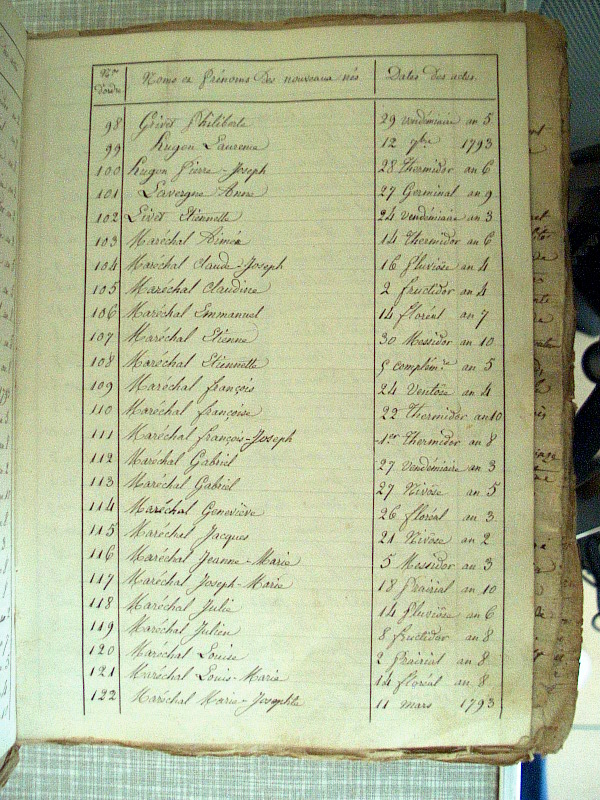 Nos d'ordre Noms et Prénoms des nouveaux nés Dates des actes.
98 Grévet Philiberte 29 vendémiaire an 5
99 Hugon Laurence 12 7bre 1793
100 Hugon Pierre-Joseph 28 Thermidor an 6
101 Lavergne Anne 27 Germinal an 9
102 Livet Etiennette 24 vendémiaire an 3
103 Maréchal Aimée 14 Thermidor an 6
104 Maréchal Claude-Joseph 16 Pluviôse an 4
105 Maréchal Claudine 2 fructidor an 4
106 Maréchal Emmanuel 14 floréal an 7
107 Maréchal Etienne 30 Messidor an 10
108 Maréchal Etiennette 5 complém.re an 5
109 Maréchal françois 24 Ventôse an 4
110 Maréchal françoise 22 Thermidor an 10
111 Maréchal françois-Joseph 1er Thermidor an 8
112 Maréchal Gabriel 27 vendémiaire an 3
113 Maréchal Gabriel 27 Nivôse an 5
114 Maréchal Geneviève 26 floréal an 3
115 Maréchal Jacques 21 Nivôse an 2
116 Maréchal Jeanne-Marie 5 Messidor an 3
117 Maréchal Joseph-Marie 18 Prairial an 10
118 Maréchal Julie 14 Pluviôse an 6
119 Maréchal Julien 8 fructidor an 8
120 Maréchal Louise 2 Prairial an 8
121 Maréchal Louis-Marie 14 floréal an 8
122 Maréchal Marie-Josephte 11 mars 1793